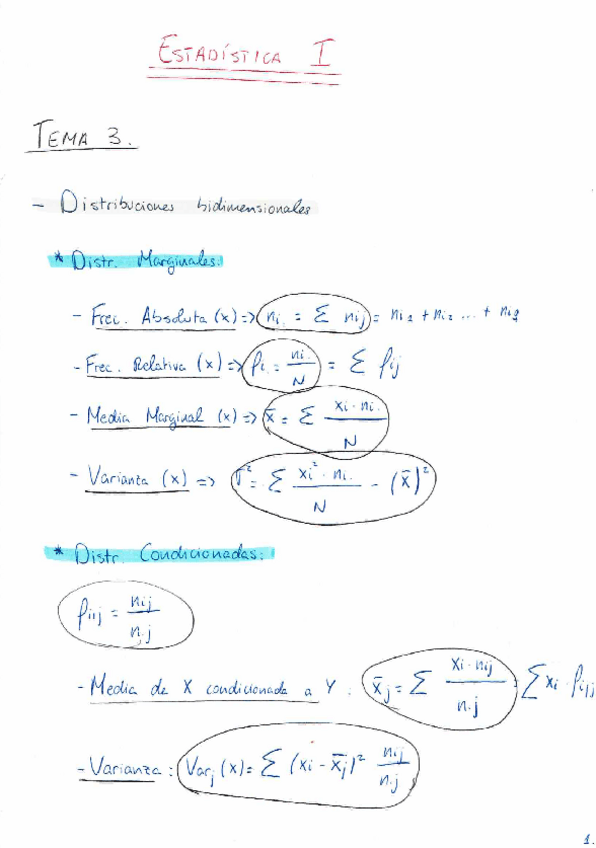 ESTADÍSTICA I
TEMA 3.
- Distribuciones bidimensionales
* Distr. Marginales:
- Frec. Absoluta (x) => ni. = Σ nij = ni1 + ni2 ... + niq
- Frec. Relativa (x) => fi. = ni. / N = Σ fij
- Media Marginal (x) => x̄ = Σ xi · ni. / N
- Varianza (x) => σ² = Σ xi² · ni. / N - (x̄)²
* Distr. Condicionadas:
fi|j = nij / n.j
- Media de X condicionada a Y: x̄j = Σ xi · nij / n.j = Σ xi · fi|j
- Varianza: Varj (x) = Σ (xi - x̄j)² nij / n.j
1.